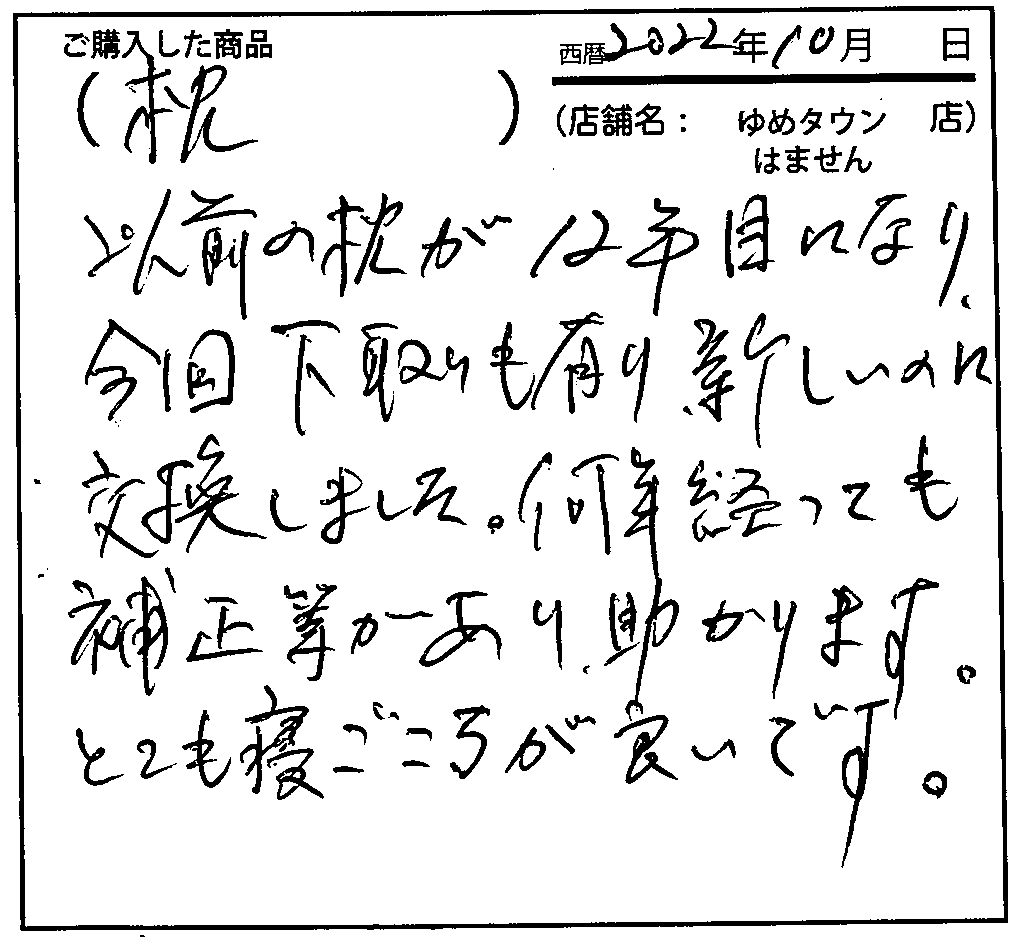 ご購入した商品
西暦2022年10月 日
(枕)
(店舗名: ゆめタウン 店)
はません
以前の枕が12年目になり、
今回下取りも有り、新しいのに
交換しました。何年経っても
補正等があり、助かります。
とても寝ごころが良いです。